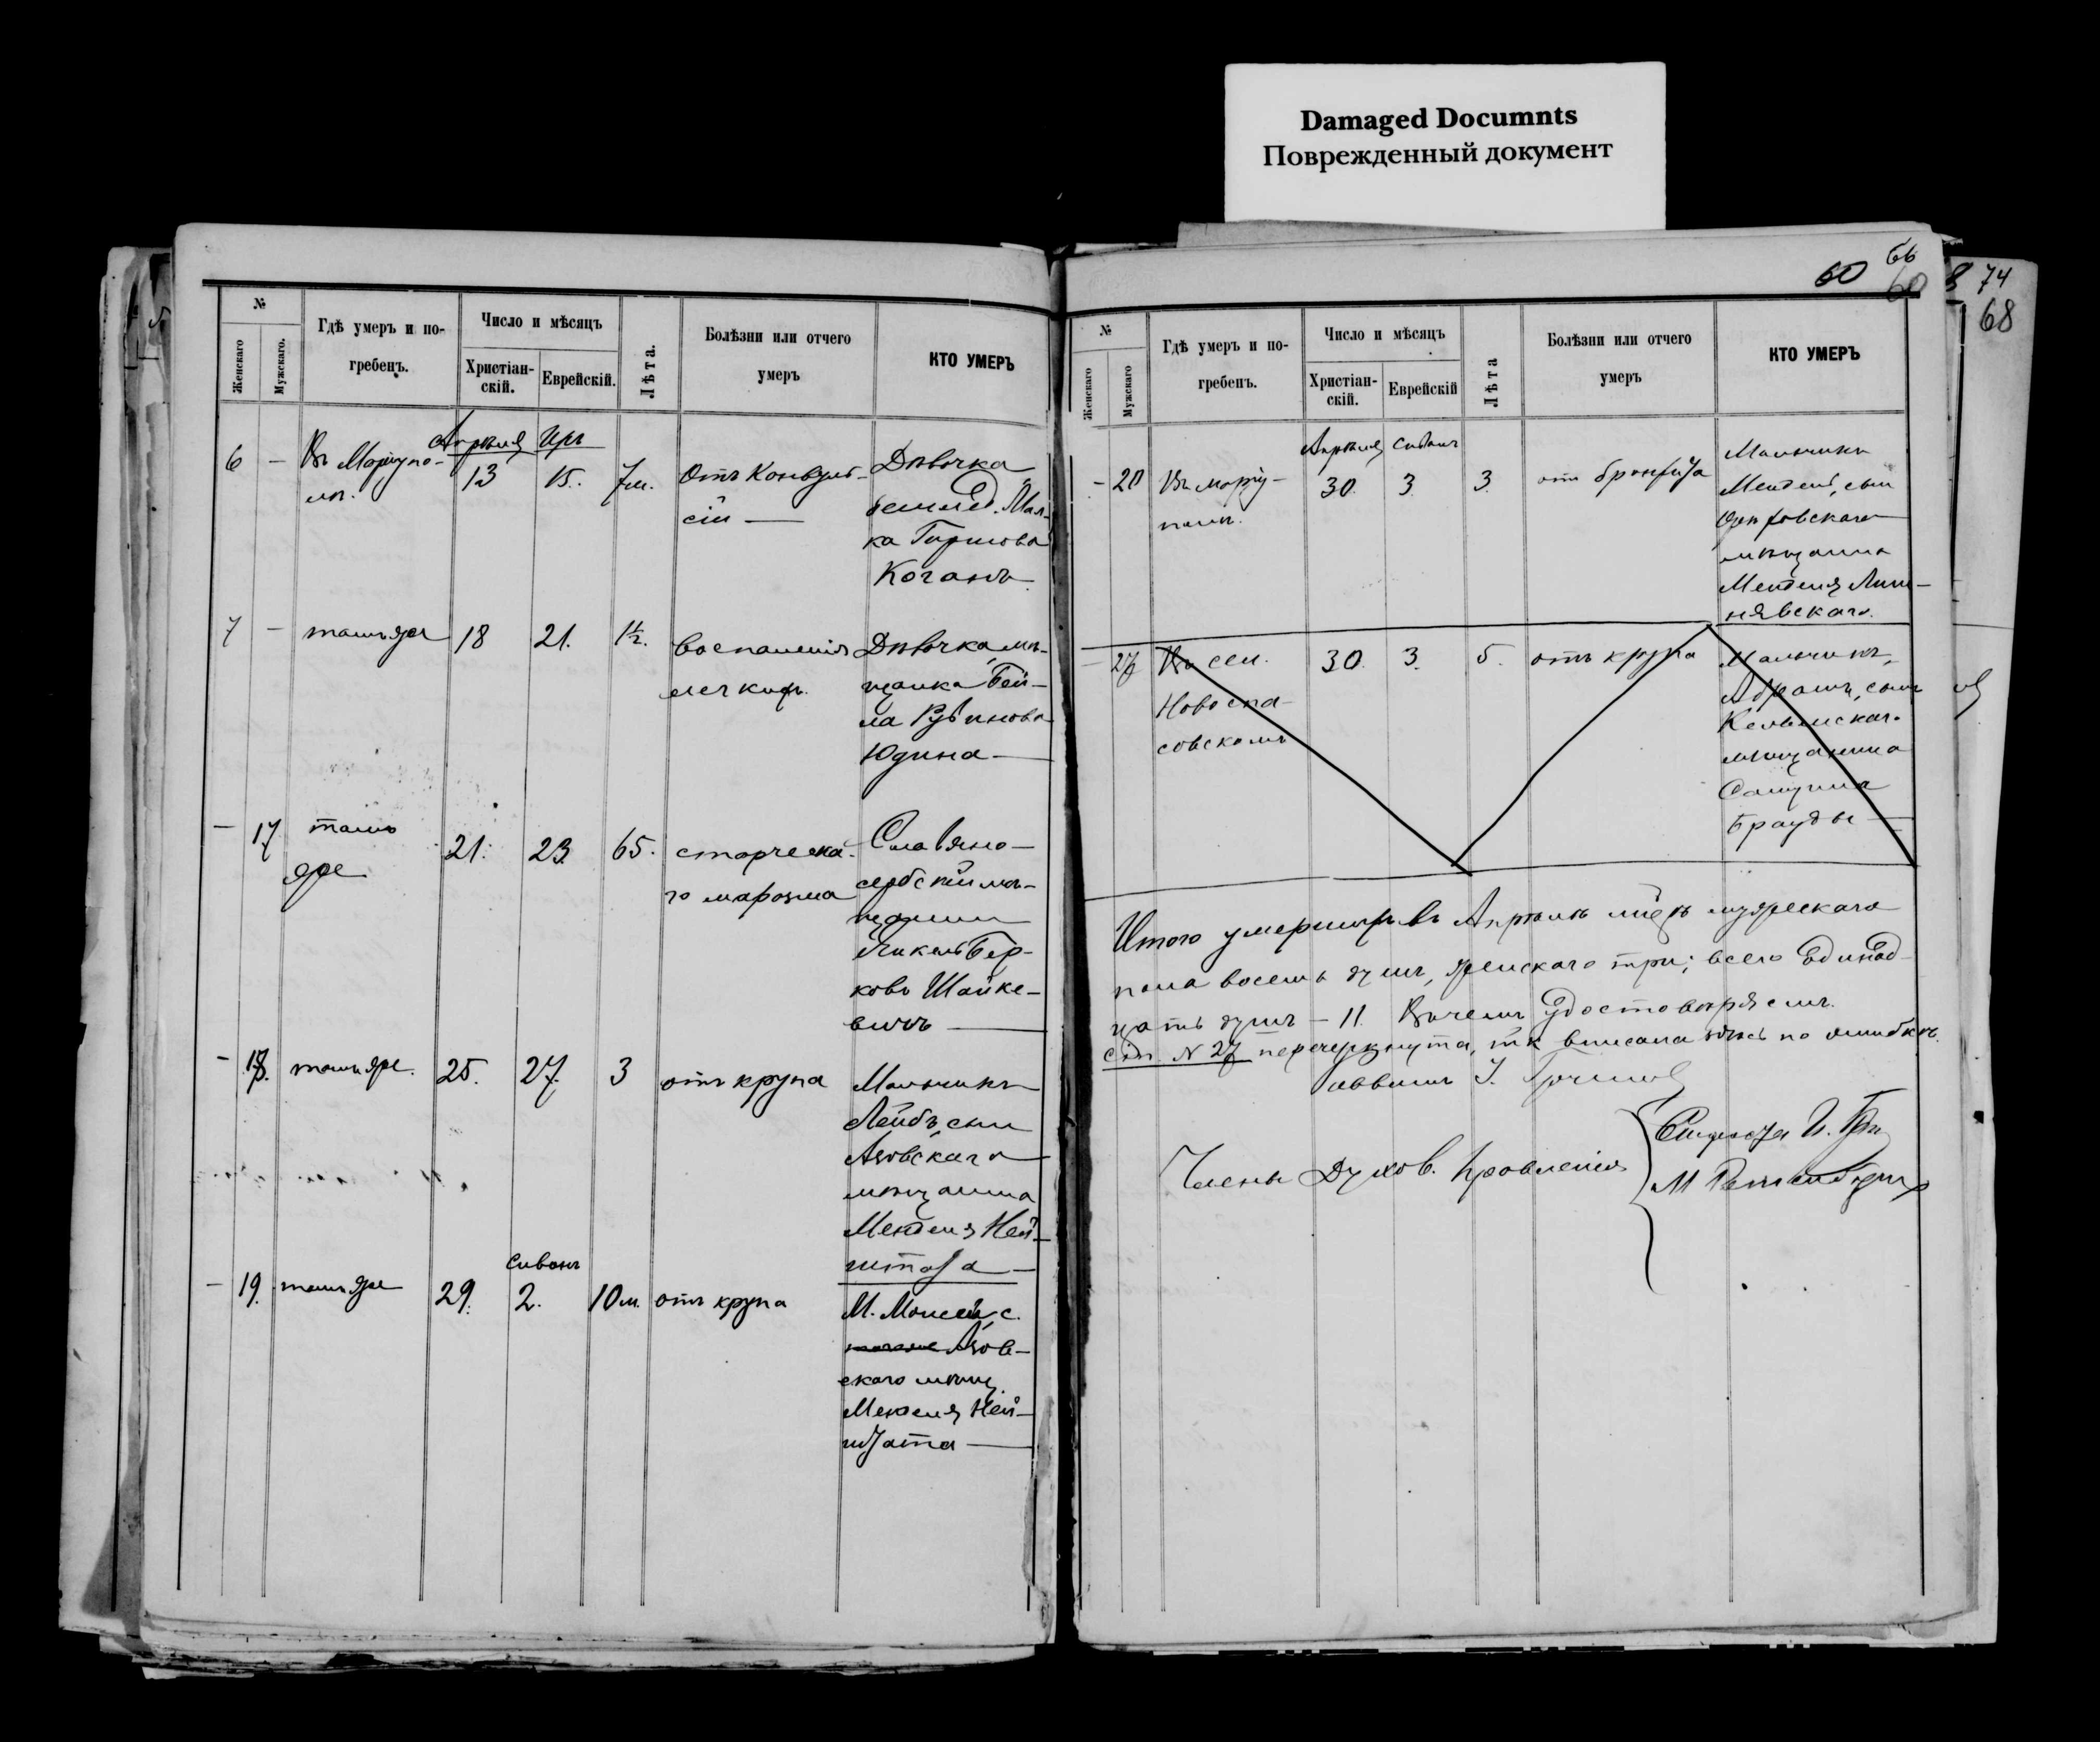 Damaged Documnts
Поврежденный документ
№
Женскаго
Мужскаго.
Гдѣ умеръ и по-
гребенъ.
Число и мѣсяцъ
Христіан-
скій.
Еврейскій.
Лѣта.
Болѣзни или отчего
умеръ
КТО УМЕРЪ
Апрѣля Иръ
6 — Въ Маріупо-
лѣ.
13 15. 7м.
Отъ Конвуль-
сій —
Дѣвочка
Мал-
ка Гиршова
Коганъ
7 — тамъ же 18 21. 1½.
воспаленія
легкихъ.
Дѣвочка, мѣ-
щанка Бей-
ла Рувинова
Юдина —
— 17 тамъ
же
21. 23 65.
старческа-
го маразма
Славяно-
сербскій мѣ-
щанинъ
Бер-
ковъ Шайке-
вичъ —
— 18. тамъ же. 25. 27. 3 отъ крупа
Мальчикъ
Лейбъ, сынъ
Азовскаго
мѣщанина
Менделя Ней-
штата —
Сиванъ
— 19. тамъ же 29. 2. 10м. отъ крупа
М. Моисей, с.
Азов-
скаго мѣщ.
Менделя Ней-
штата —
60 66
60
8 74
68
№
Женскаго
Мужскаго
Гдѣ умеръ и по-
гребенъ.
Число и мѣсяцъ
Христіан-
скій.
Еврейскій
Лѣта
Болѣзни или отчего
умеръ
КТО УМЕРЪ
Апрѣля Сиванъ
— 20 Въ Маріу-
полѣ.
30. 3. 3. отъ бронхита
Мальчикъ
Мендель, сынъ
мѣщанина
Менделя Лип-
нявскаго.
— 27 Въ сел.
Новоспа-
совскомъ
30. 3. 5. отъ крупа
Мальчикъ,
Абрамъ, сынъ
мѣщанина
Брауды —
Итого умершихъ въ Апрѣлѣ мцѣ мужескаго
пола восемь душъ, женскаго три; всего Единад-
цать душъ — 11. Въ чемъ Удостовѣряемъ.
Ст. N 27 перечеркнута, т.к. вписана здѣсь по ошибкѣ.
Раввинъ
Члены Духов. Правленія
Староста
М